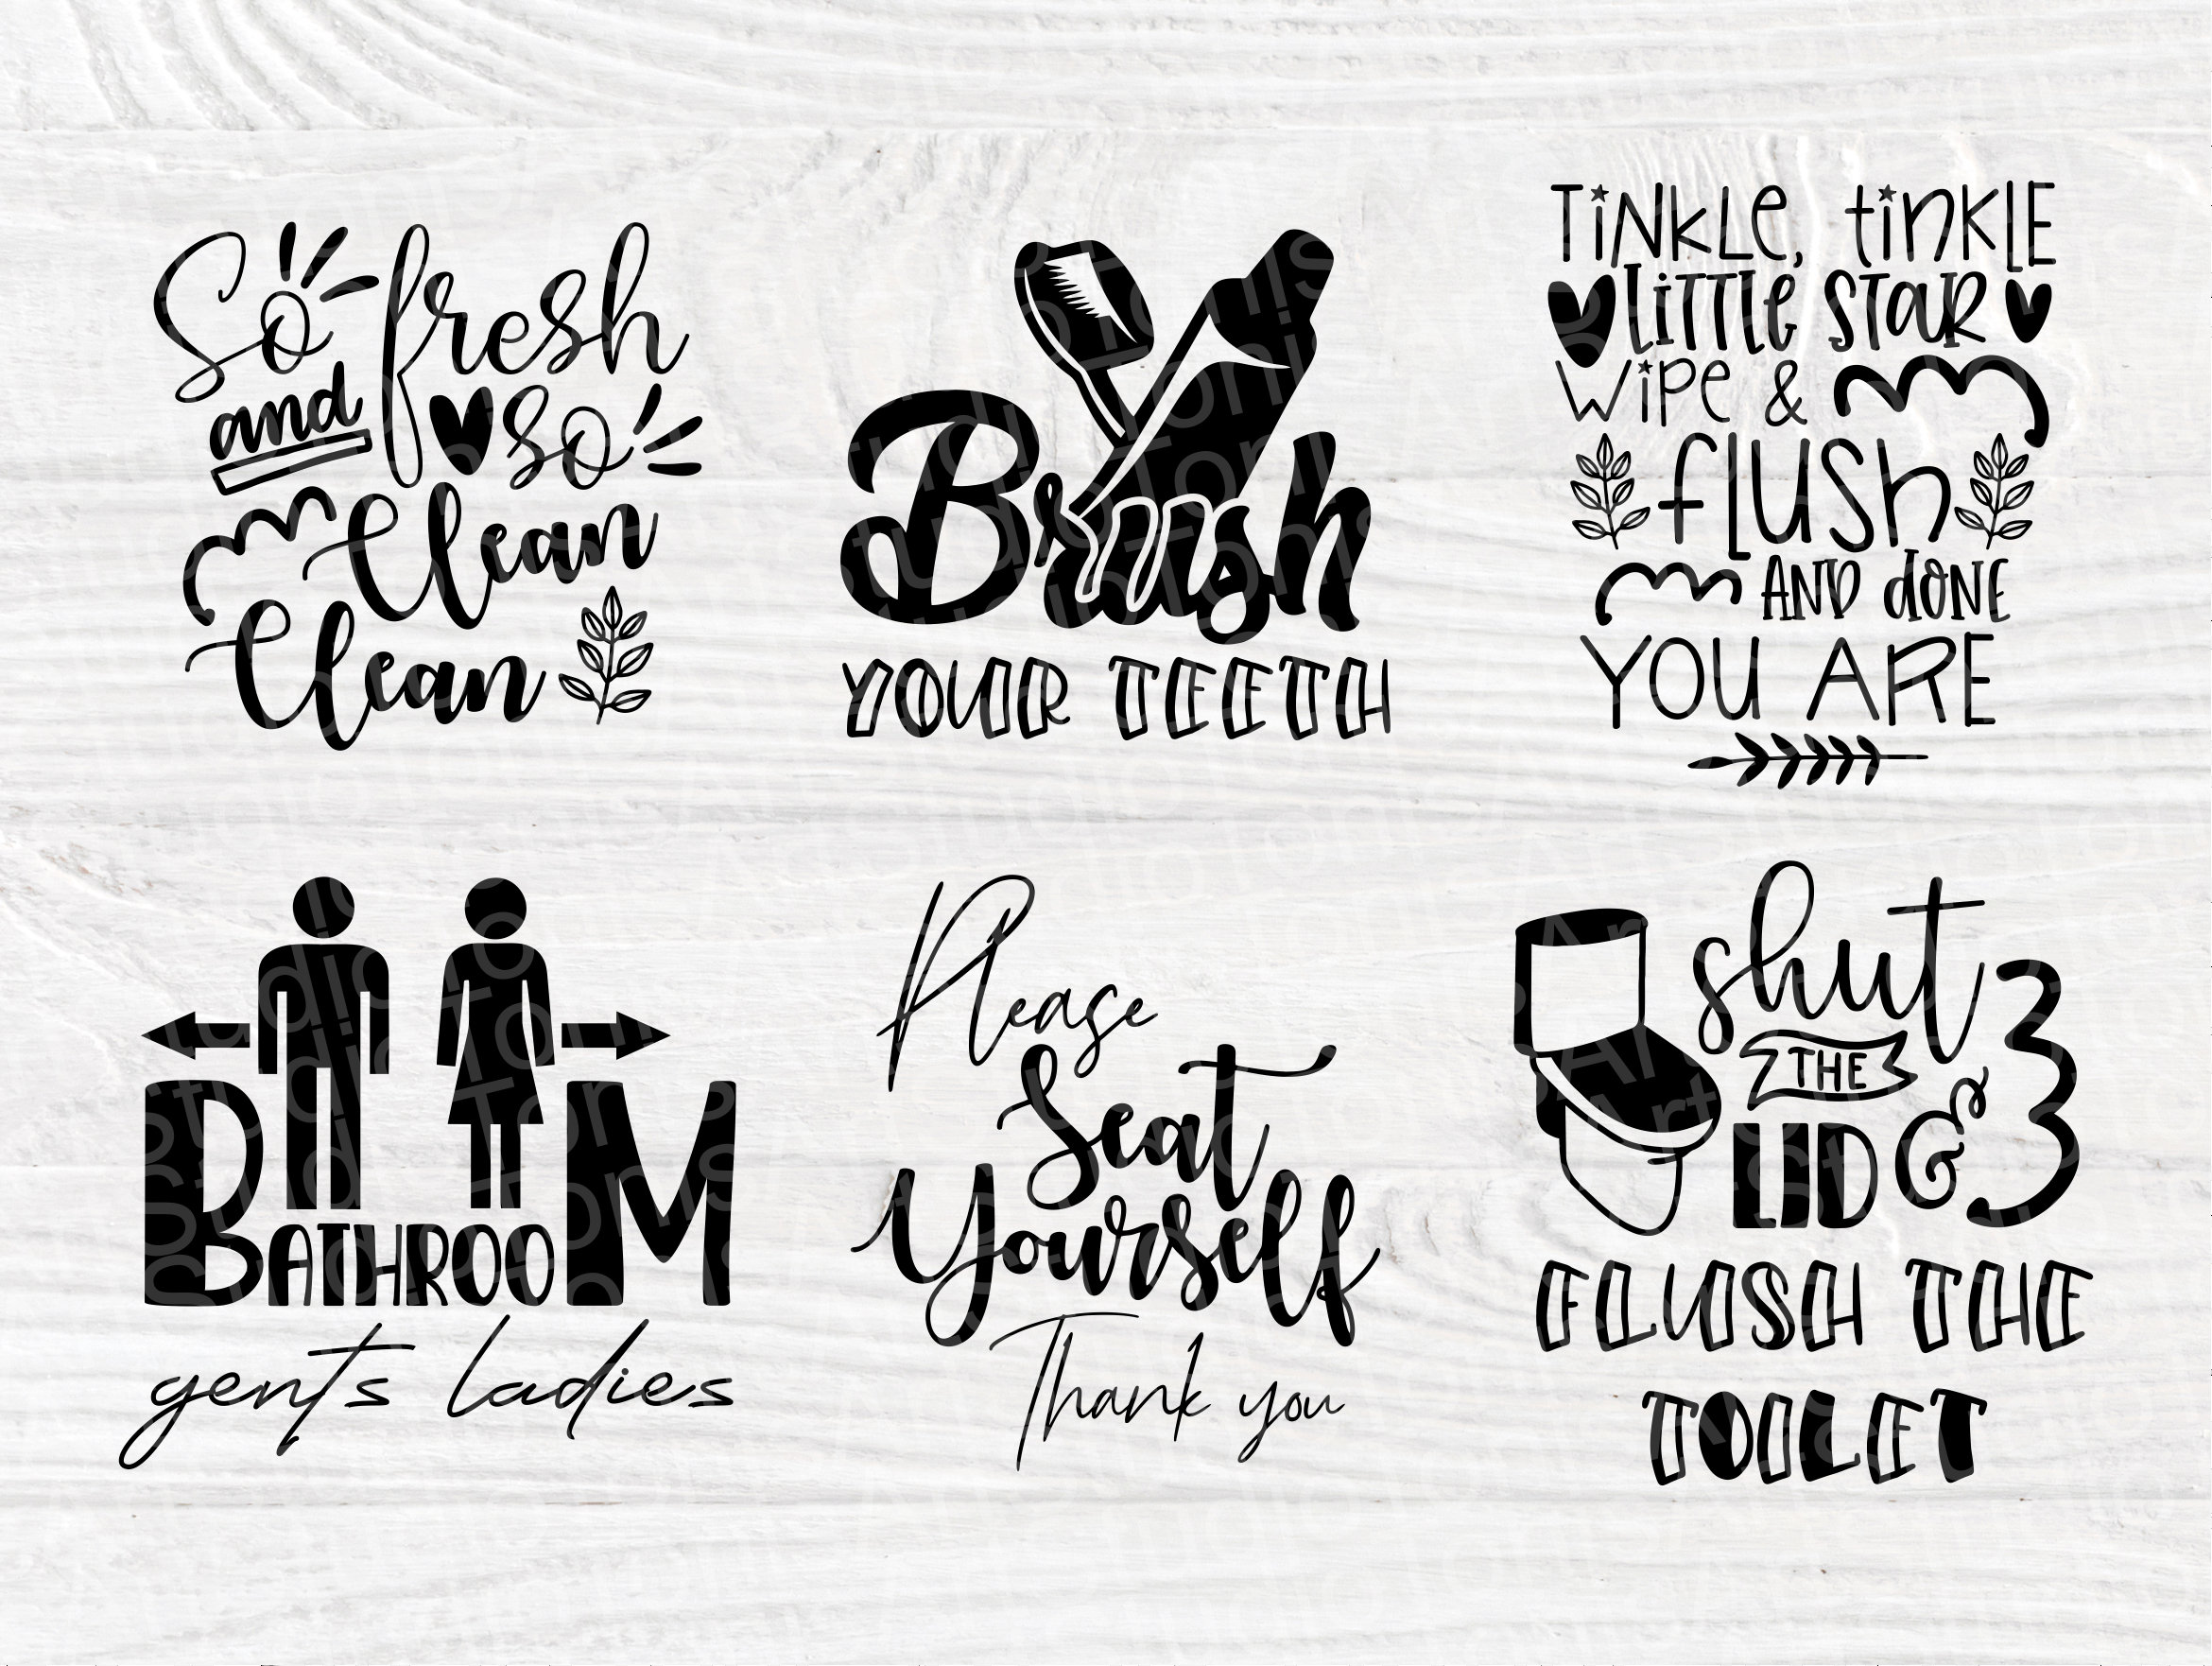 So fresh
and so
Clean
Clean
Brush
YOUR TEETH
TiNkLe, tinKLE
LiTTLe STaR
wipe &
fLUSh
AND dONE
YOU ARE
BATHROOM
gents ladies
Please
Seat
Yourself
Thank you
shut
THE
LID &
FLUSH THE
TOILET